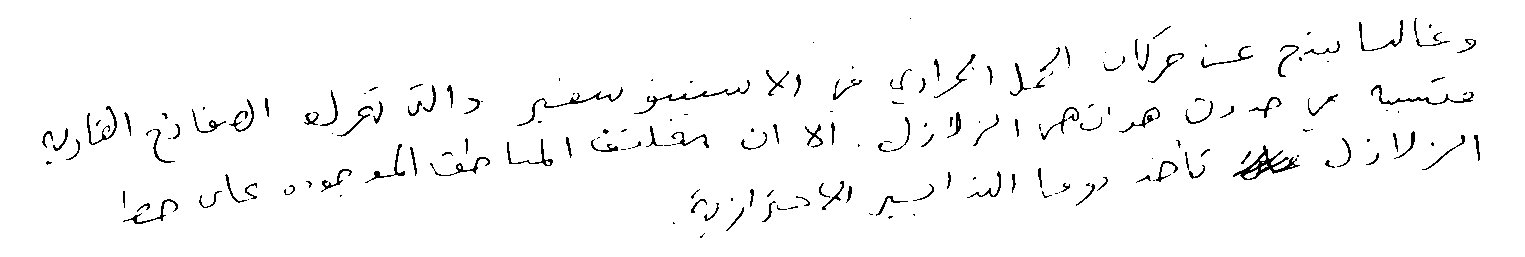 وغالبا ينتج عن حركات الحمل الحراري في الاسينوسفير والتي تحرك الصفائح القارية
متسببة في حدوث هزات هي الزلازل. الا ان مختلف المناطق الموجودة على خط
الزلازل تأخذ دوما التدابير الاحترازية.